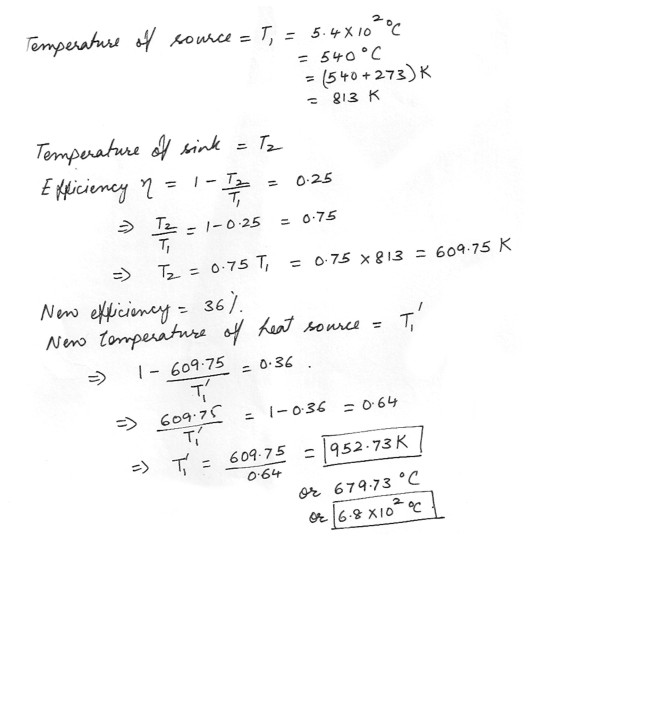 Temperature of source = T₁ = 5.4 × 10² °C
= 540 °C
= (540 + 273) K
= 813 K
Temperature of sink = T₂
Efficiency η = 1 − T₂/T₁ = 0.25
⇒ T₂/T₁ = 1 − 0.25 = 0.75
⇒ T₂ = 0.75 T₁ = 0.75 × 813 = 609.75 K
New efficiency = 36 %.
New temperature of heat source = T₁′
⇒ 1 − 609.75/T₁′ = 0.36 .
⇒ 609.75/T₁′ = 1 − 0.36 = 0.64
⇒ T₁′ = 609.75/0.64 = 952.73 K
or 679.73 °C
or 6.8 × 10² °C